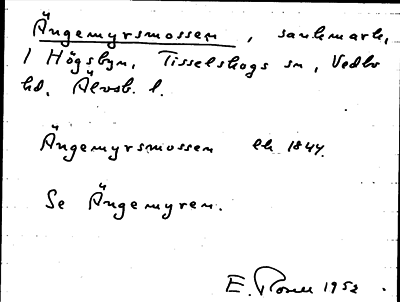 Ängemyrsmossen, sankmark,
1 Högsbyn, Tisselskogs sn, Vedbo
hd, Älvsb. l.
Ängemyrsmossen ek 1844.
Se Ängemyren.
E. 1952